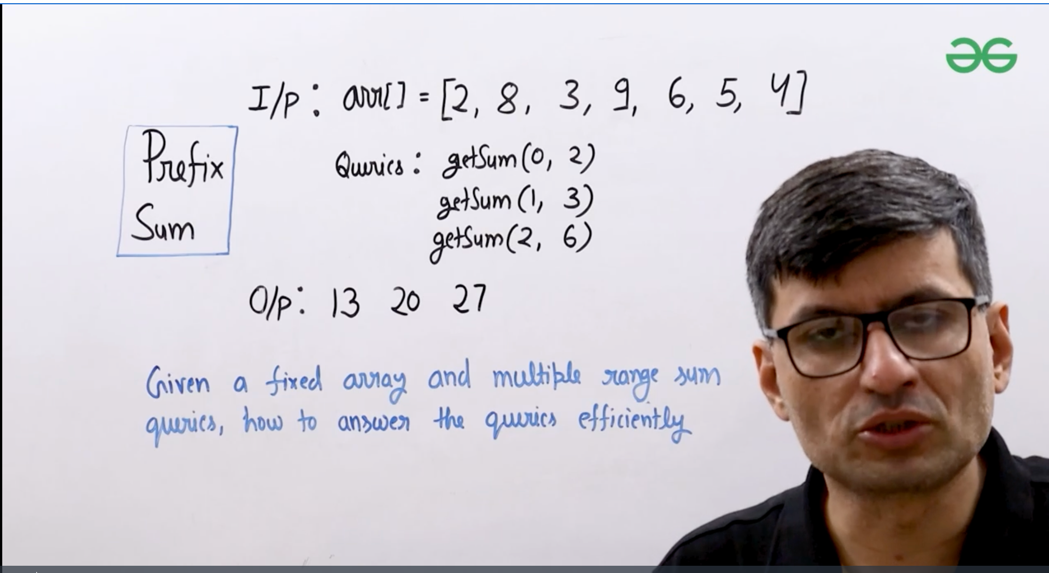 I/P: arr[] = [2, 8, 3, 9, 6, 5, 4]
Prefix
Sum
Queries: getSum(0, 2)
getSum(1, 3)
getSum(2, 6)
O/P: 13 20 27
Given a fixed array and multiple range sum
queries, how to answer the queries efficiently